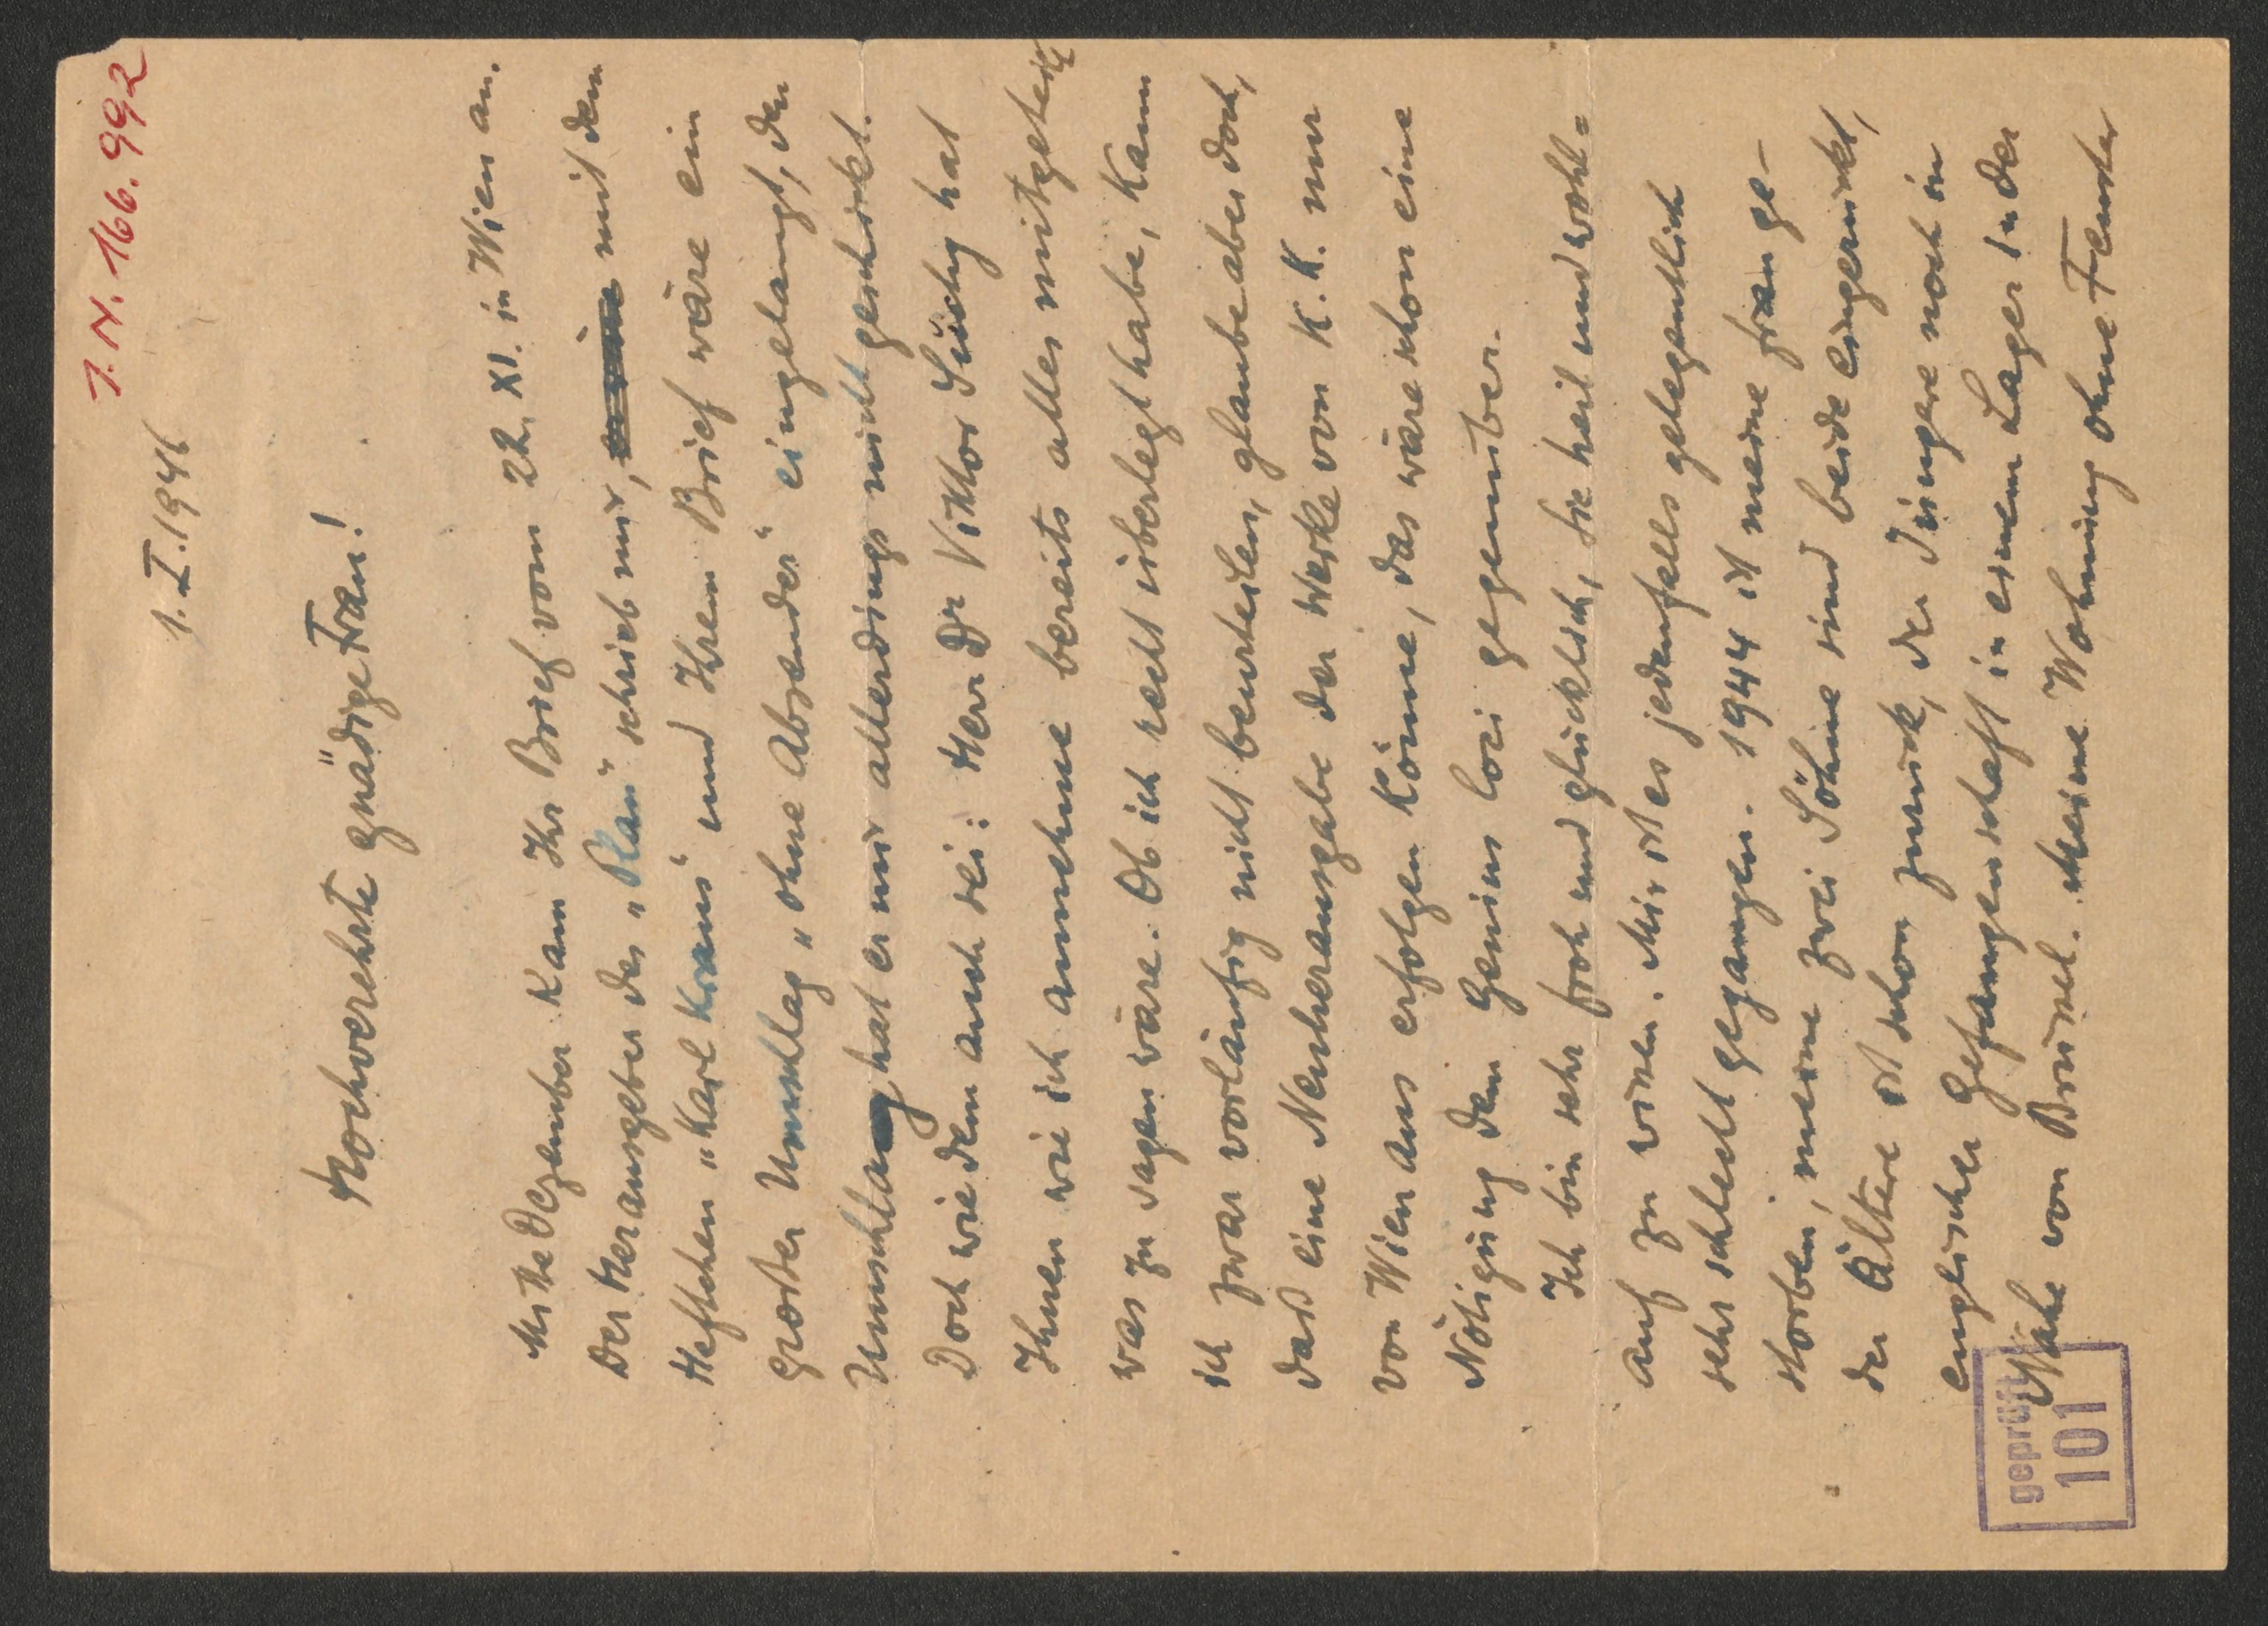 J.N. 166.992
1. I. 1946
Hochverehrte gnädige Frau!
Mitte Dezember kam Ihr Brief vom 22. XI. in Wien an.
Der Herausgeber des „Plan“ schrieb mir, mit dem
Heftchen „Karl Kraus“ und Ihrem Brief wäre ein
großer Umschlag „ohne Absender“ eingelangt, den
Umschlag hat er mir allerdings nicht geschickt.
Doch wie dem auch sei: Herr Dr Viktor Suchy hat
Ihnen wie ich annehme bereits alles mitgeteilt
was zu sagen wäre. Ob ich recht überlegt habe, kann
ich zwar vorläufig nicht beurteilen, glaube aber doch,
daß eine Neuherausgabe der Werke von K. K. nur
von Wien aus erfolgen könne, das wäre schon eine
Nötigung dem Genius loci gegenüber.
Ich bin sehr froh und glücklich, Sie heil und wohl-
auf zu wissen. Mir ist es jedenfalls gelegentlich
sehr schlecht gegangen. 1944 ist meine Frau ge-
storben, meine zwei Söhne sind beide eingerückt,
der Ältere ist schon zurück, der Jüngere noch in
englischer Gefangenschaft in einem Lager in der
Nähe von Brüssel. Meine Wohnung ohne Fenster
geprüft
101